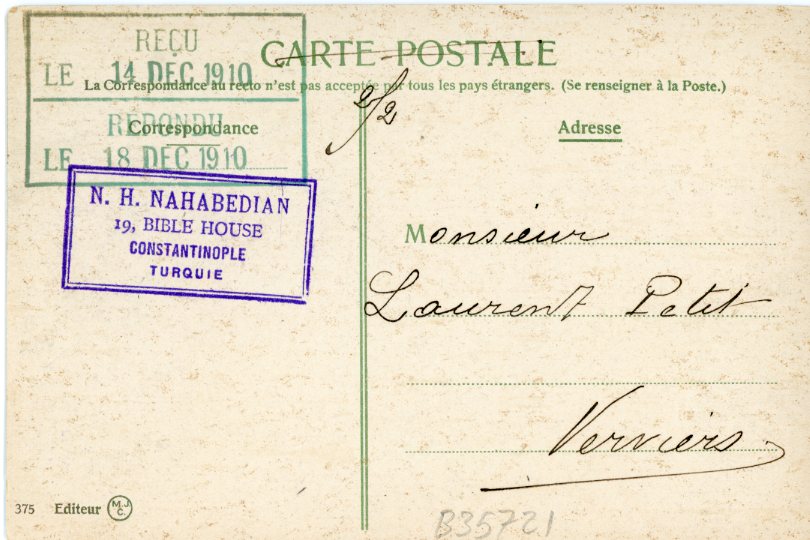 REÇU
LE 14 DEC 1910
REPONDU
LE 18 DEC 1910
CARTE POSTALE
La Correspondance au recto n'est pas acceptée par tous les pays étrangers. (Se renseigner à la Poste.)
Correspondance
2/2
Adresse
N. H. NAHABEDIAN
19, BIBLE HOUSE
CONSTANTINOPLE
TURQUIE
Monsieur
Laurent Petit
Verviers
375 Editeur M.J.C.
B35721